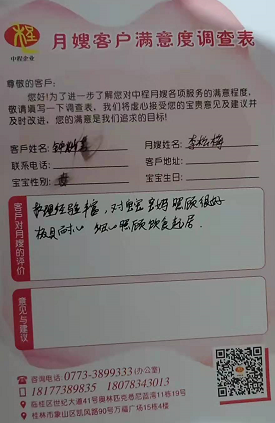 中程企业
月嫂客户满意度调查表
尊敬的客户：
您好!为了进一步了解您对中程月嫂各项服务的满意程度，
敬请填写一下调查表，我们将虚心接受您的宝贵意见及建议并
及时改进，您的满意是我们追求的目标!
客户姓名: 月嫂姓名:
联系电话: 客户地址:
宝宝性别: 宝宝生日:
客户对月嫂的评价
护理经验丰富，对宝宝妈妈照顾很好
极具耐心 细心照顾饮食起居.
意见与建议
咨询电话: 0773-3899333(办公室)
18177389835 18078343013
临桂区世纪大道41号奥林匹克悉尼蓝湾11栋19号
桂林市象山区凯风路90号万福广场15栋4楼